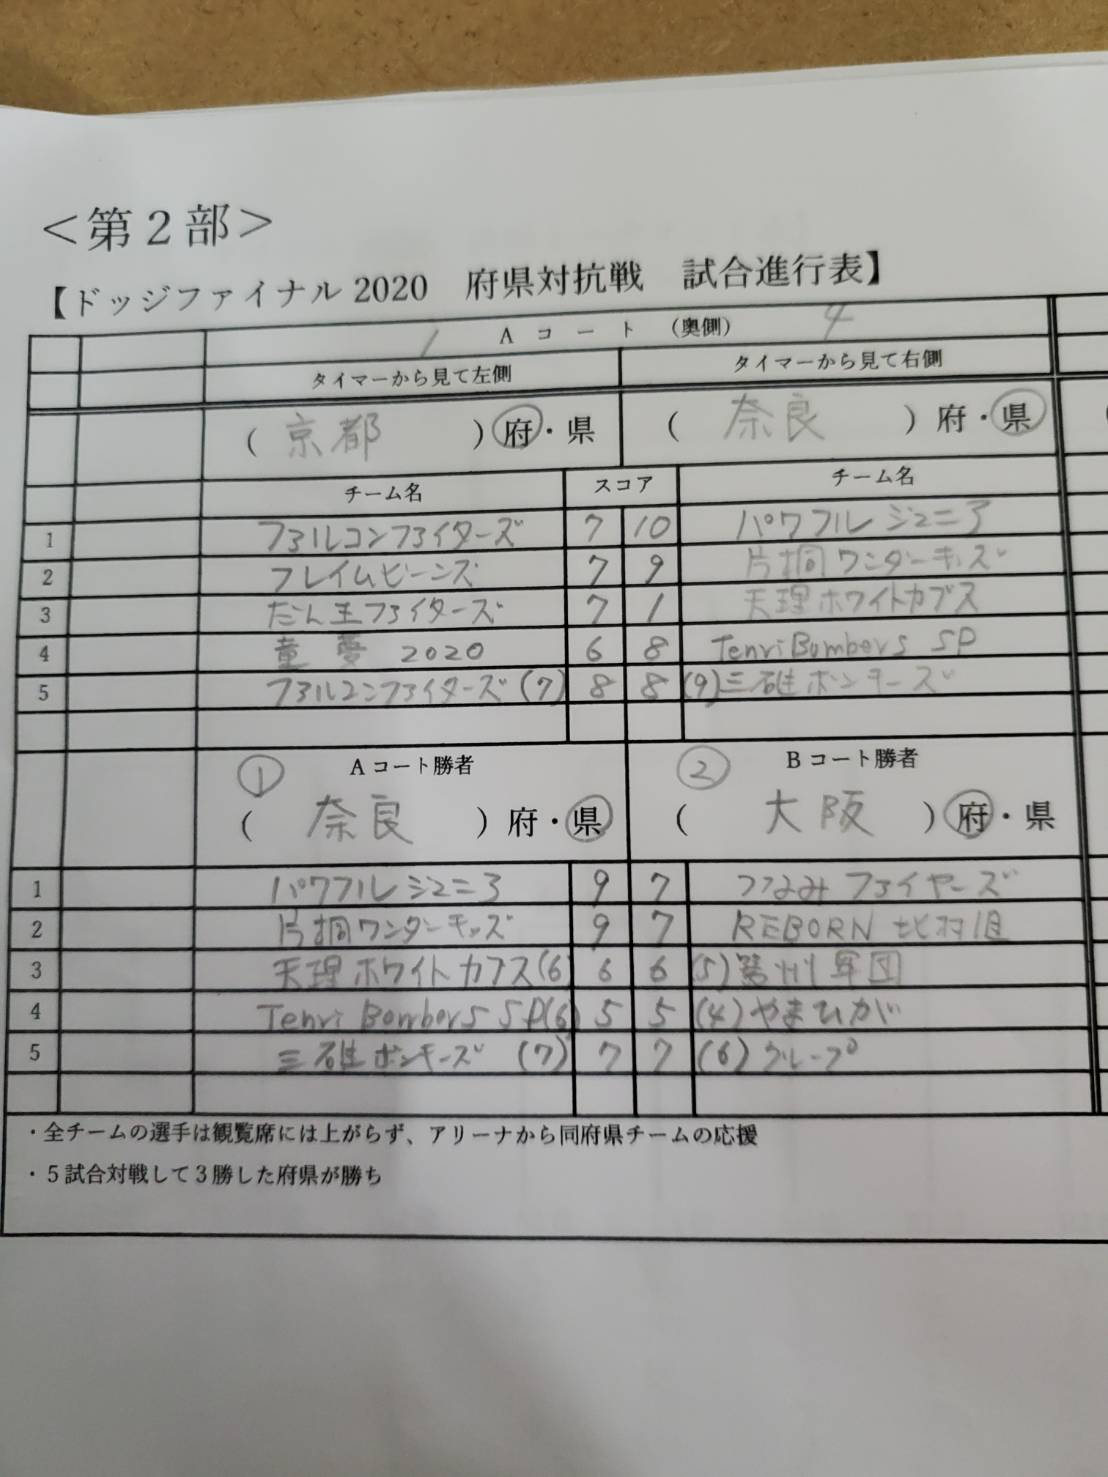 ＜第２部＞
【ドッジファイナル2020　府県対抗戦　試合進行表】
1 Aコート（奥側） 4
タイマーから見て左側 タイマーから見て右側
（京都）府・県 （奈良）府・県
チーム名 スコア チーム名
1 ファルコンファイターズ 7 10 パワフルジュニア
2 フレイムビーンズ 7 9 片桐ワンダーキッズ
3 だん王ファイターズ 7 1 天理ホワイトカブス
4 童夢 2020 6 8 Tenri Bombers SP
5 ファルコンファイターズ(7) 8 8 (9)三碓ボンキーズ
① Aコート勝者 ② Bコート勝者
（奈良）府・県 （大阪）府・県
1 パワフルジュニア 9 7 つるみファイヤーズ
2 片桐ワンダーキッズ 9 7 REBORN
3 天理ホワイトカブス(6) 6 6 (5) 軍団
4 Tenri Bombers SP(6) 5 5 (4)やまひが
5 三碓ボンキーズ (7) 7 7 (6)グループ
・全チームの選手は観覧席には上がらず、アリーナから同府県チームの応援
・５試合対戦して３勝した府県が勝ち